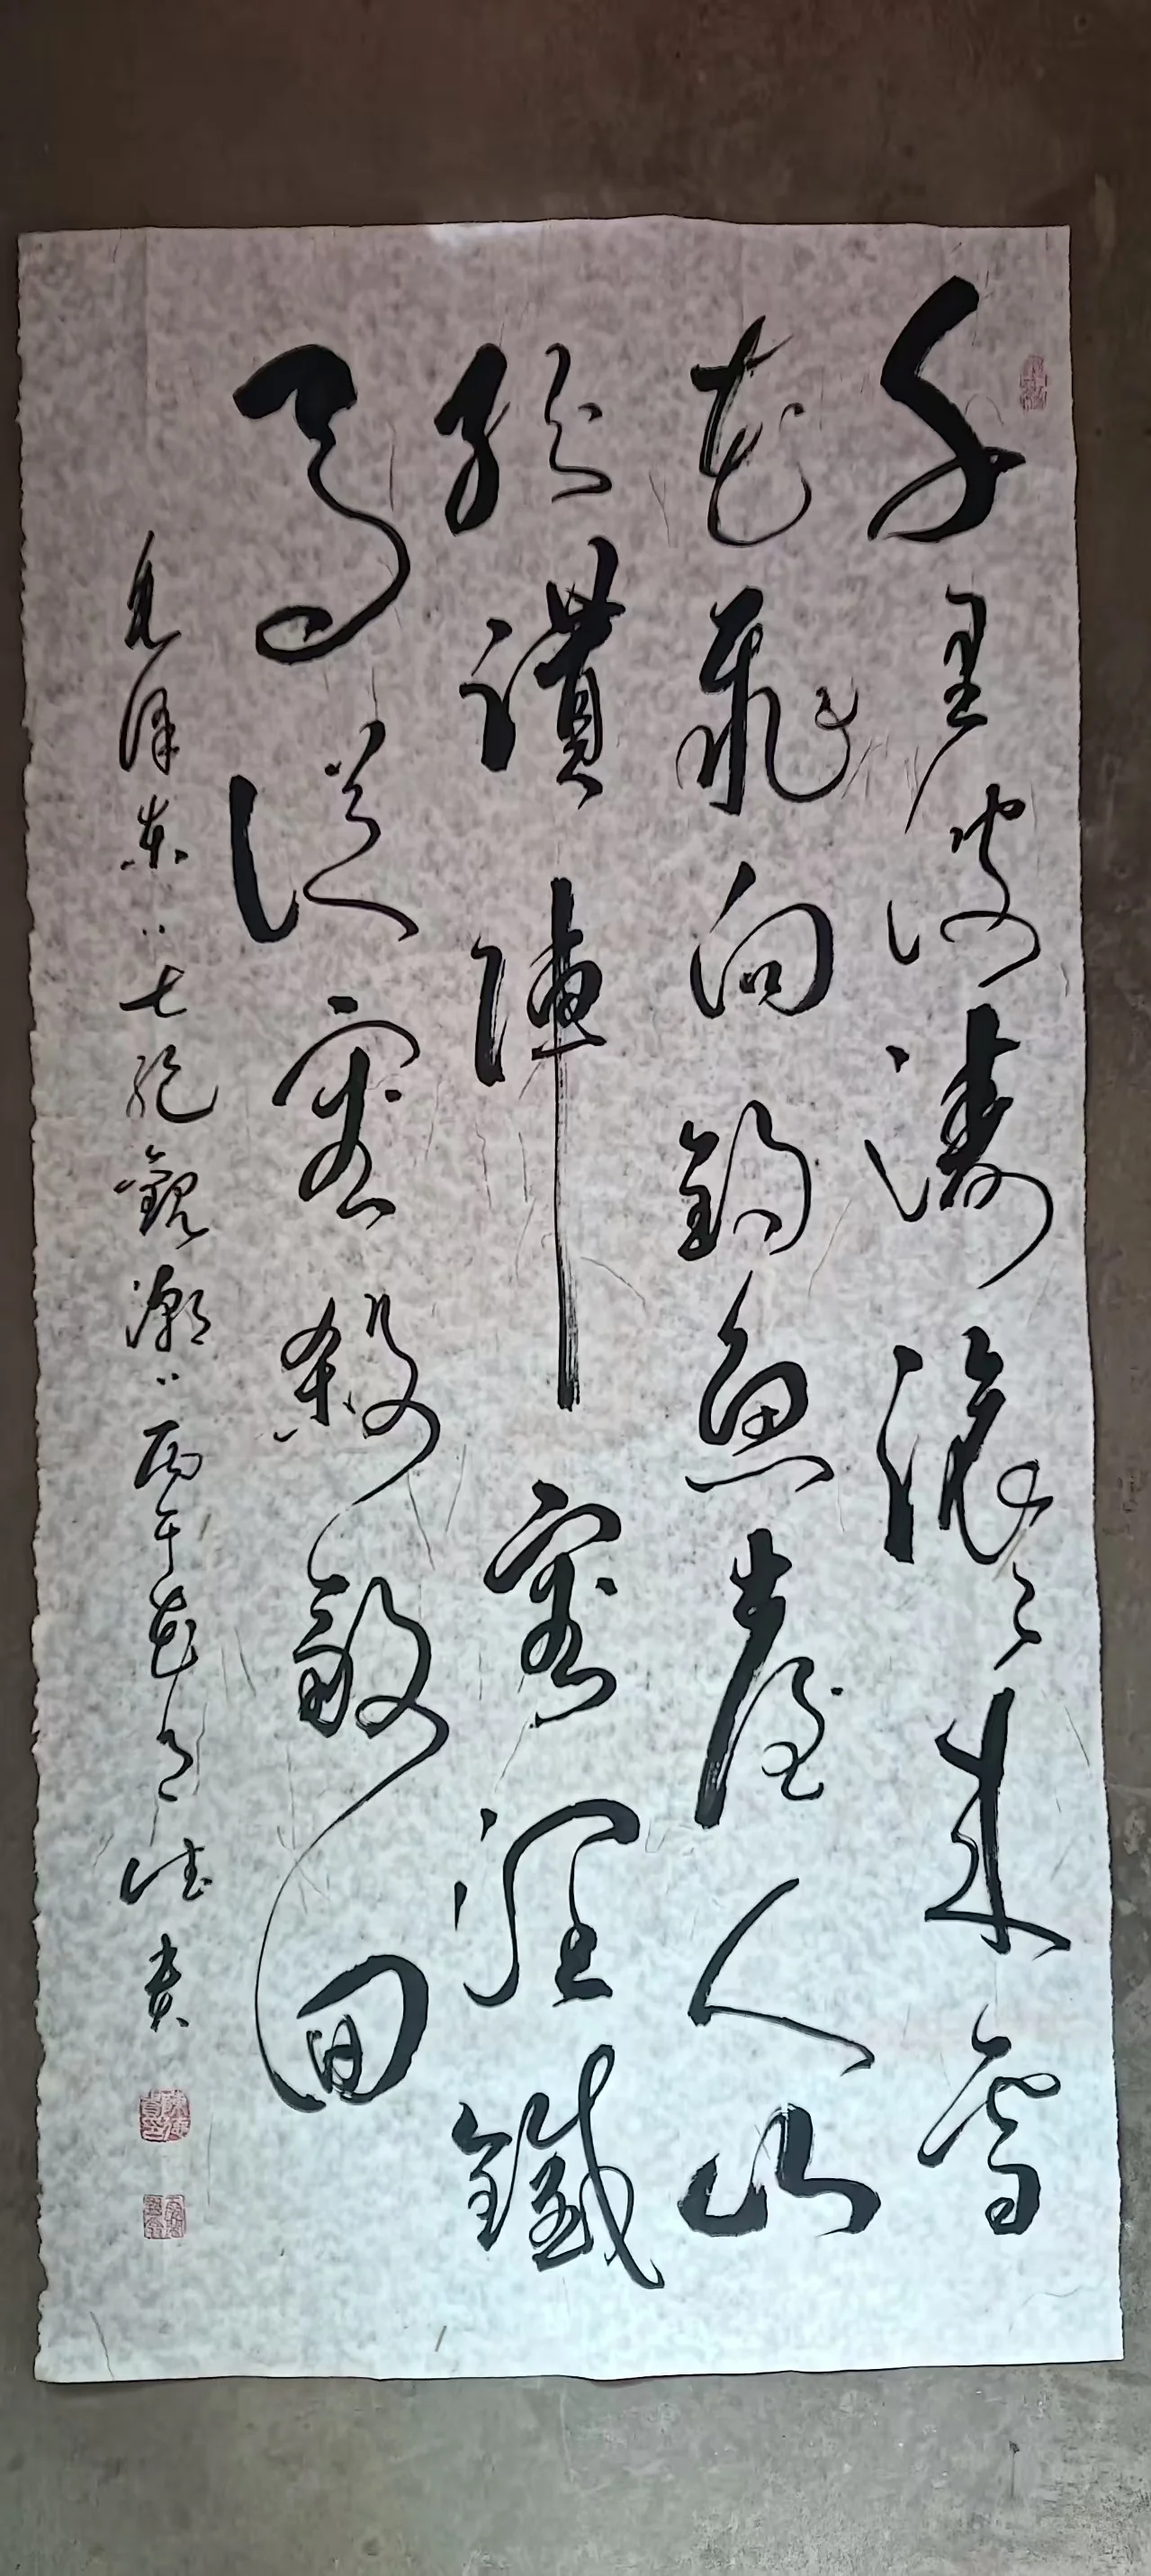 千里波濤滾々来雪
花飛向釣魚臺人山
紛讚陣容闊鐵
馬從容殺敵回
毛澤東“七絕觀潮”丙午花月德贵